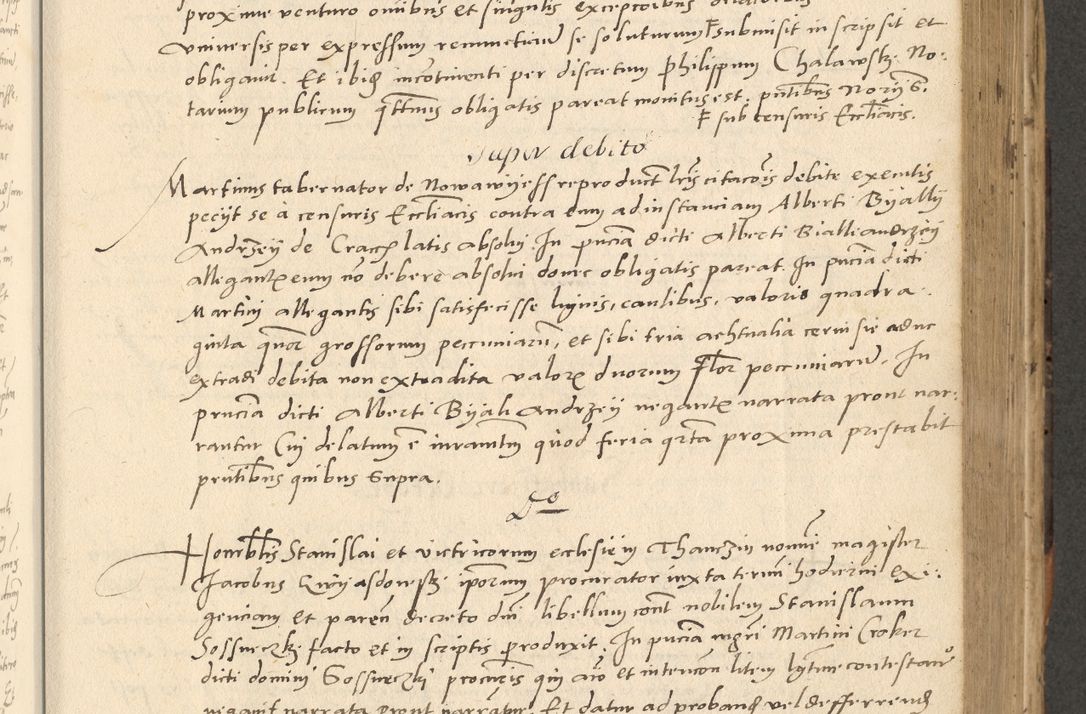 proxime venturo omnibus et singulis exceptionibus
universis per expressum renunctiavit se soluturum submisit inscripsit et
obligavit. Et ibidem incontinenti per discretum Philippum Chalawskj No-
tarium publicum quatenus obligatis pareat monitus est. pntibus
sub censuris Ecclīacis.
Super debito
Martinus tabernator de Nowawyess reproduct lris citacois debite executis
peciyt se à censuris Eccliacis contra eum ad instanciam Alberti Byallÿ
Andrzeÿ de Cracoꝶ latis absolvi In pncia dicti Alberti Bialle Andrzeÿ
allegantꝶ eum nō debere absolvi donec obligatis pareat. In pncia dicti
Martini allegantis sibi satisfecisse lignis, caulibus, valoris quadra-
ginta quor grossorum pecuniarū, et sibi tria achtualia cervisie adhuc
extradi debita non extradita valorꝶ duorum Flor pecuniarū. In
pnncia dicti Alberti Byali Andrzeÿ negantꝶ narrata prout nar-
rantur Cui delatum ē iuramtm quod feria qrta proxima prestabit
pntibus quibus supra.
Do
Honorblis Stanislai et victricorum ecclesie in Thanczin nomine magister
Jacobus ipsorum procurator iuxta termi hodierni exi-
genciam et paren decreto dni libellum cont nobilem Stanislaum
Sossneczkj facto et in scriptis produxit. In pncia mgri Martini Croker
dicti domini Sossneczkj procuris qui aīo et intencon litem lgtime contestan
negavit narrata prout narrātur Et datur ad proband vel defferrend